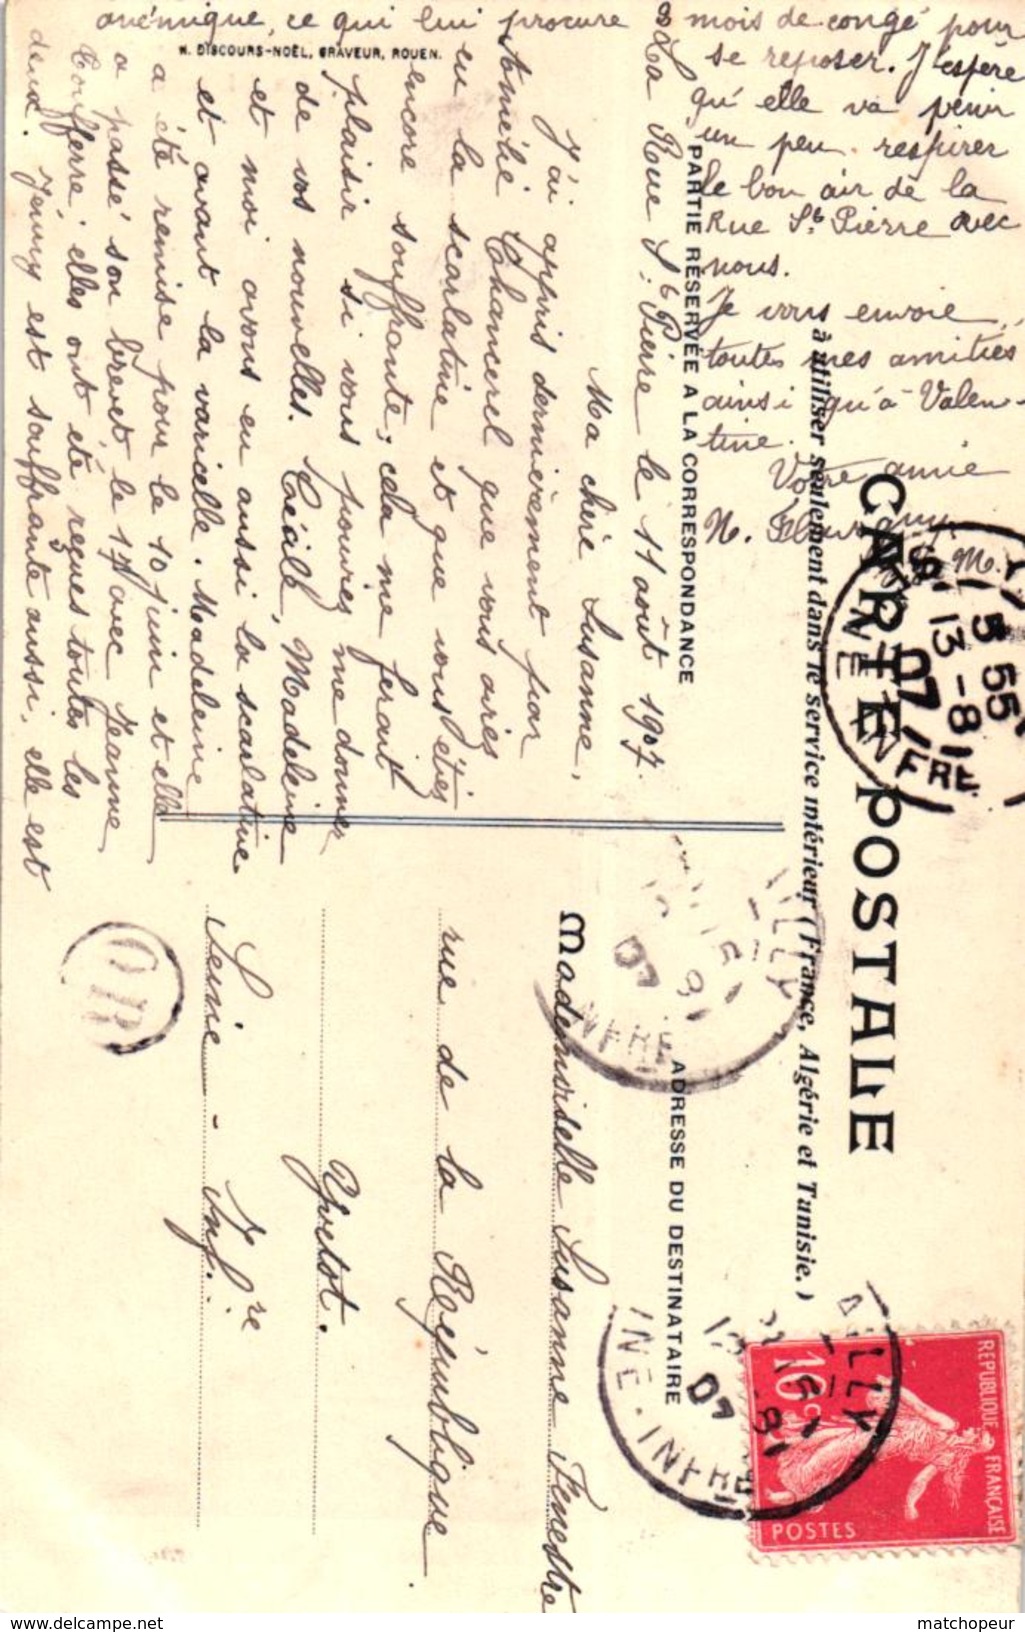 CARTE POSTALE
à utiliser seulement dans le service intérieur (France, Algérie et Tunisie.)
PARTIE RÉSERVÉE A LA CORRESPONDANCE
ADRESSE DU DESTINATAIRE
La Rue St Pierre le 11 août 1907.
Ma chère Susanne,
J'ai appris dernièrement par
Amélie Chancerel que vous aviez
eu la scarlatine et que vous étiez
encore souffrante; cela me ferait
plaisir si vous pouviez me donner
de vos nouvelles. Cécile, Madeleine
et moi avons eu aussi la scarlatine
et avant la varicelle. Madeleine
a été remise pour le 10 juin et elle
a passé son brevet le 17 avec Jeanne
elles ont été reçues toutes les
deux. Jenny est souffrante aussi, elle est
anémique, ce qui lui procure 3 mois de congé pour
se reposer. J'espère
qu'elle va venir
un peu respirer
le bon air de la
Rue St Pierre avec
nous.
Je vous envoie
toutes mes amitiés
ainsi qu'à Valen-
tine.
Votre amie
Mademoiselle Susanne Fenestre
rue de la République
Yvetot.
Seine-Infre
H. DISCOURS-NOËL, GRAVEUR, ROUEN.
REPUBLIQUE FRANÇAISE
10c
POSTES
5 55
13-8
07
INFRE
OR
AILLY
07
INE-INFRE
ILLY
07
INFRE
matchopeur